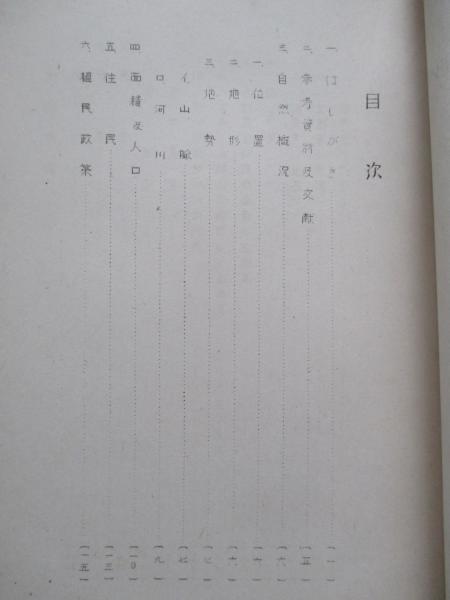 目次
一、はしがき (一)
二、参考資料及文献 (五)
三、自然概況 (六)
一、位置
二、地形 (六)
三、地勢 (七)
イ、山脈 (七)
ロ、河川 (九)
四、面積及人口 (一〇)
五、住民 (一三)
六、植民政策 (一五)